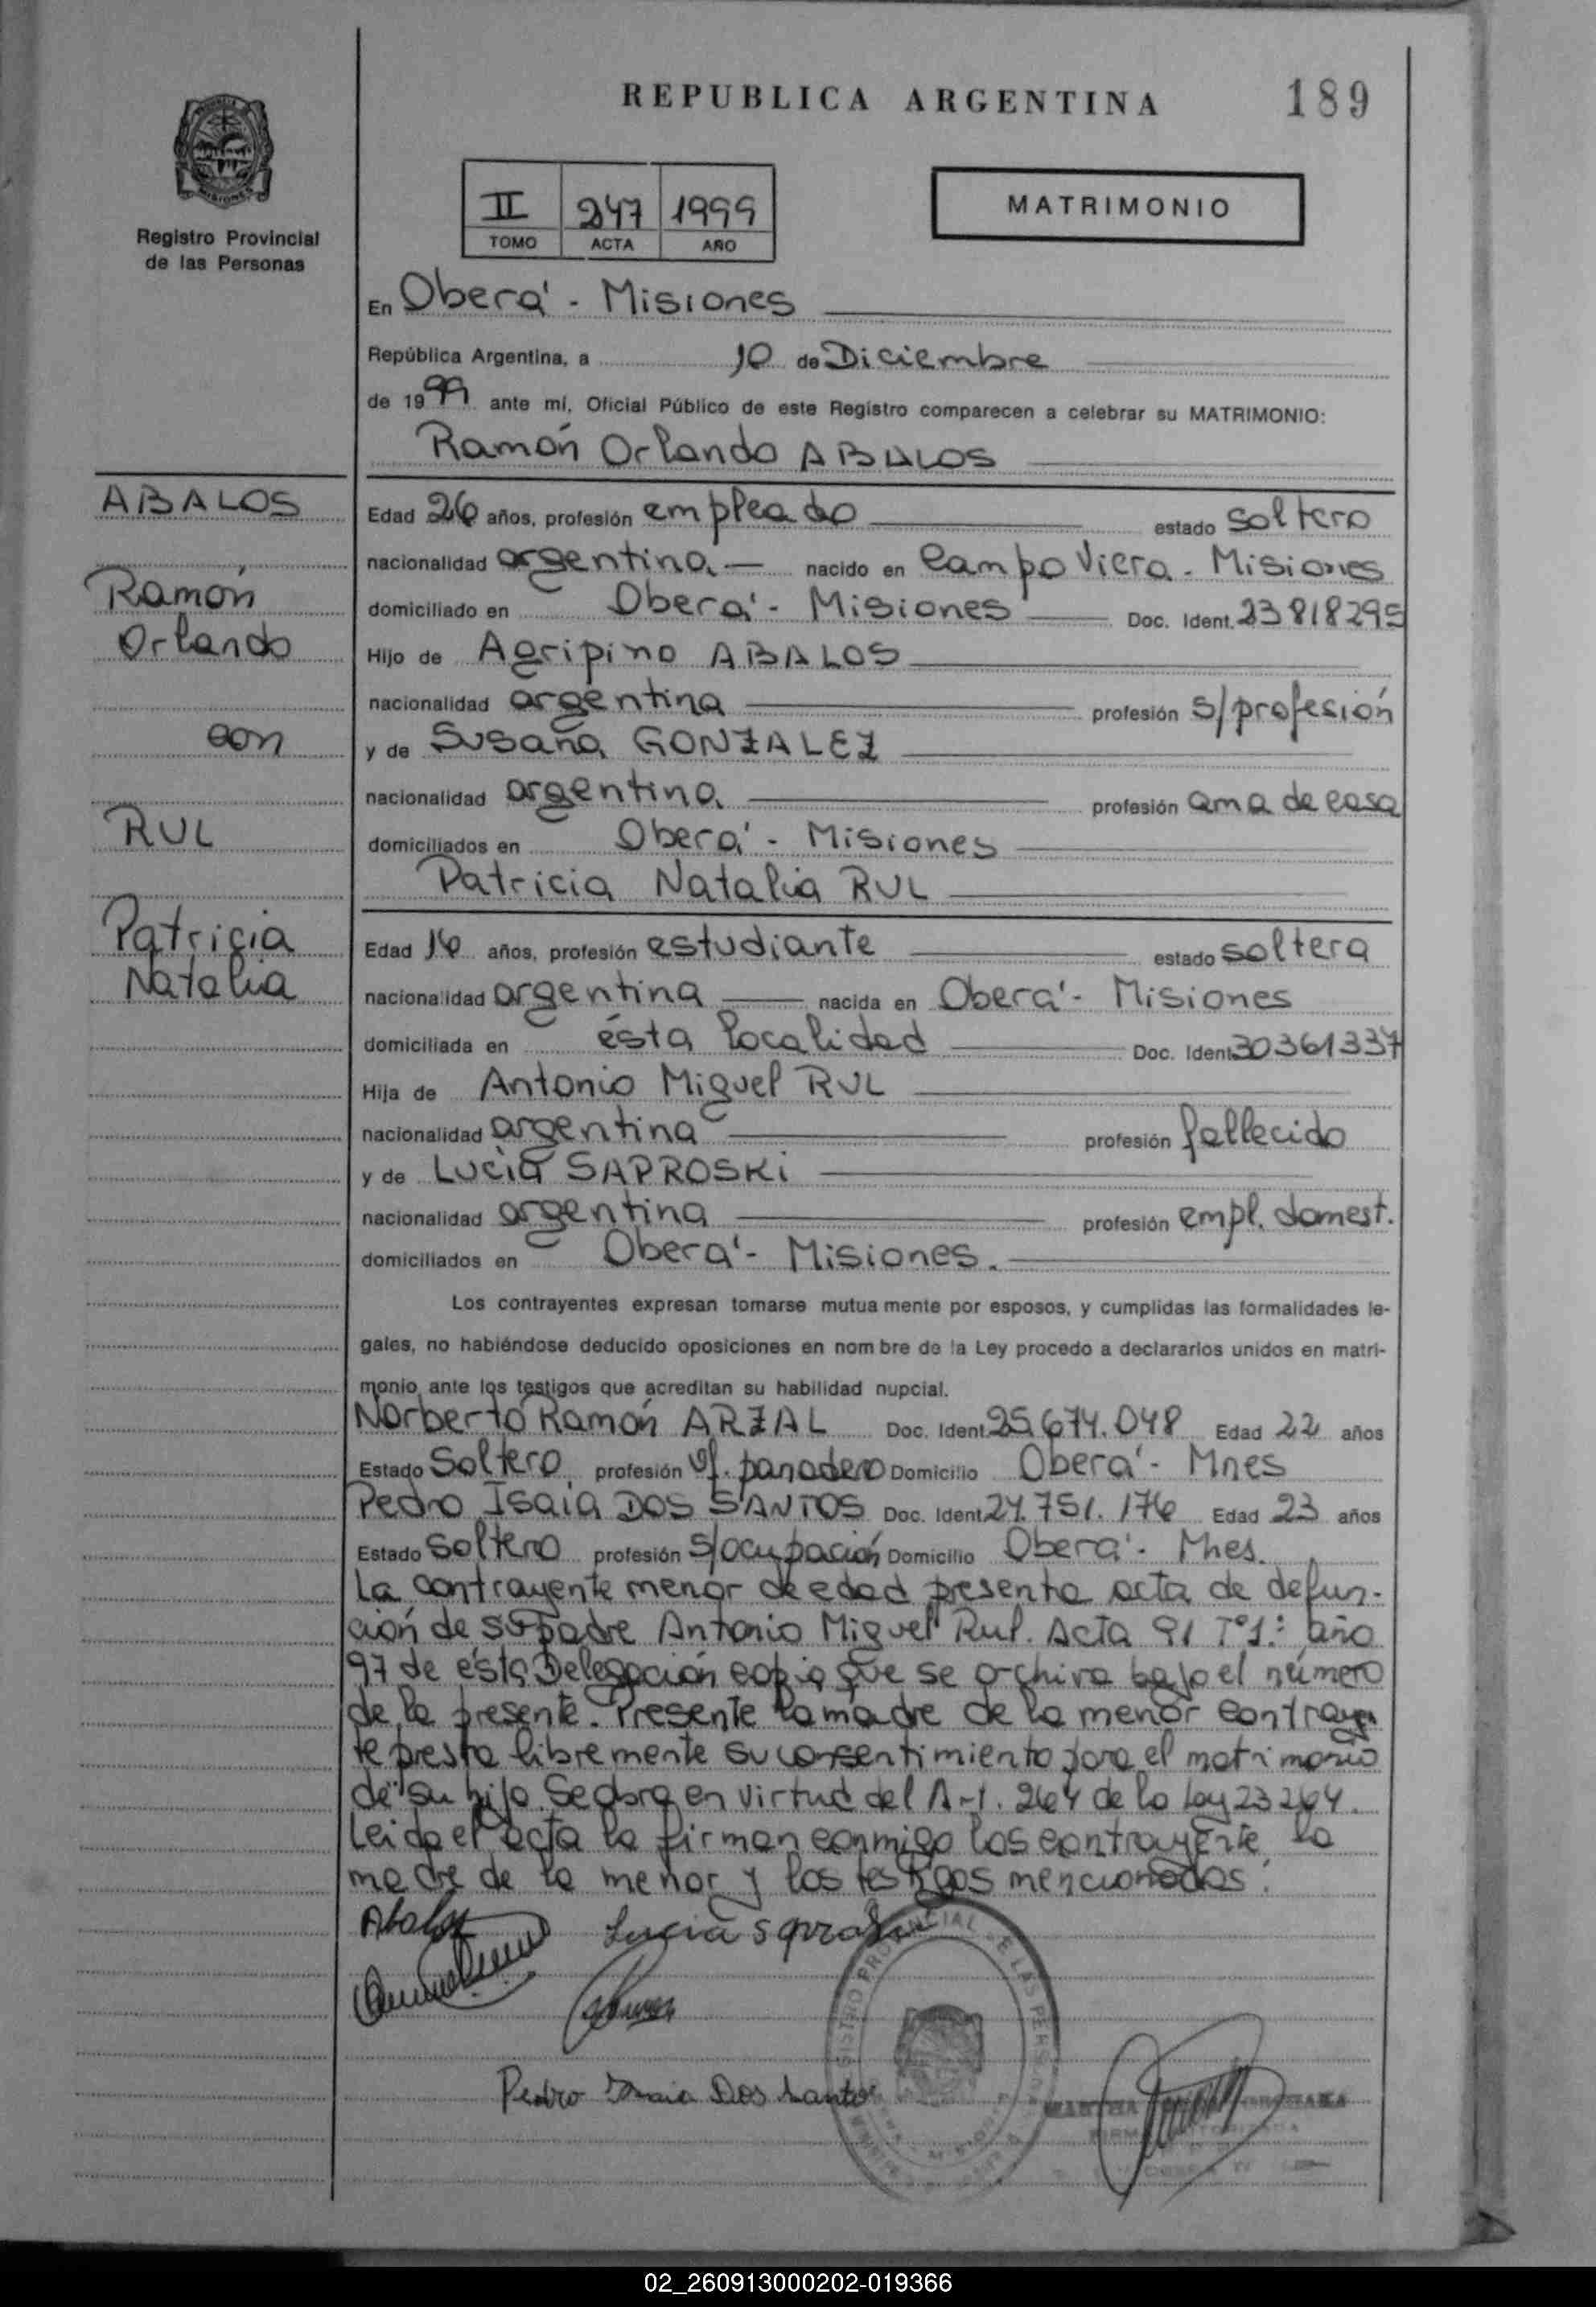 REPUBLICA ARGENTINA
189
II 247 1999
TOMO ACTA AÑO
MATRIMONIO
Registro Provincial
de las Personas
En Oberá - Misiones
República Argentina, a 10 de Diciembre
de 1999 ante mí, Oficial Público de este Registro comparecen a celebrar su MATRIMONIO:
Ramón Orlando ABALOS
ABALOS
Ramón
Orlando
con
RUL
Patricia
Natalia
Edad 26 años, profesión empleado estado soltero
nacionalidad argentina nacido en Campo Viera - Misiones
domiciliado en Oberá - Misiones Doc. Ident. 23818295
Hijo de Agripino ABALOS
nacionalidad argentina profesión s/profesión
y de Susana GONZALEZ
nacionalidad argentina profesión ama de casa
domiciliados en Oberá - Misiones
Patricia Natalia RUL
Edad 16 años, profesión estudiante estado soltera
nacionalidad argentina nacida en Oberá - Misiones
domiciliada en ésta localidad Doc. Ident. 30361337
Hija de Antonio Miguel RUL
nacionalidad argentina profesión fallecido
y de Lucía SAPROSKi
nacionalidad argentina profesión empl. domest.
domiciliados en Oberá - Misiones.
Los contrayentes expresan tomarse mutua mente por esposos, y cumplidas las formalidades le-
gales, no habiéndose deducido oposiciones en nom bre de la Ley procedo a declararlos unidos en matri-
monio ante los testigos que acreditan su habilidad nupcial.
Norberto Ramón ARZAL Doc. Ident. 25.674.048 Edad 22 años
Estado Soltero profesión of. panadero Domicilio Oberá - Mnes
Pedro Isaia DOS SANTOS Doc. Ident. 24.751.176 Edad 23 años
Estado Soltero profesión s/ocupación Domicilio Oberá - Mnes.
La contrayente menor de edad presenta acta de defun-
ción de su padre Antonio Miguel Rul. Acta 91 Tº1.º año
97 de ésta Delegación copia que se archiva bajo el número
de la presente. Presente la madre de la menor contrayen
te presta libremente su consentimiento para el matrimonio
de su hija. Se labra en virtud del Art. 264 de la Ley 23264.
Leida el acta la firman conmigo los contrayente la
madre de la menor y los testigos mencionados.
Abalos
Lucia
Pedro Isaia Dos Santos
REGISTRO PROVINCIAL DE LAS PERSONAS
MARTHA
02_260913000202-019366